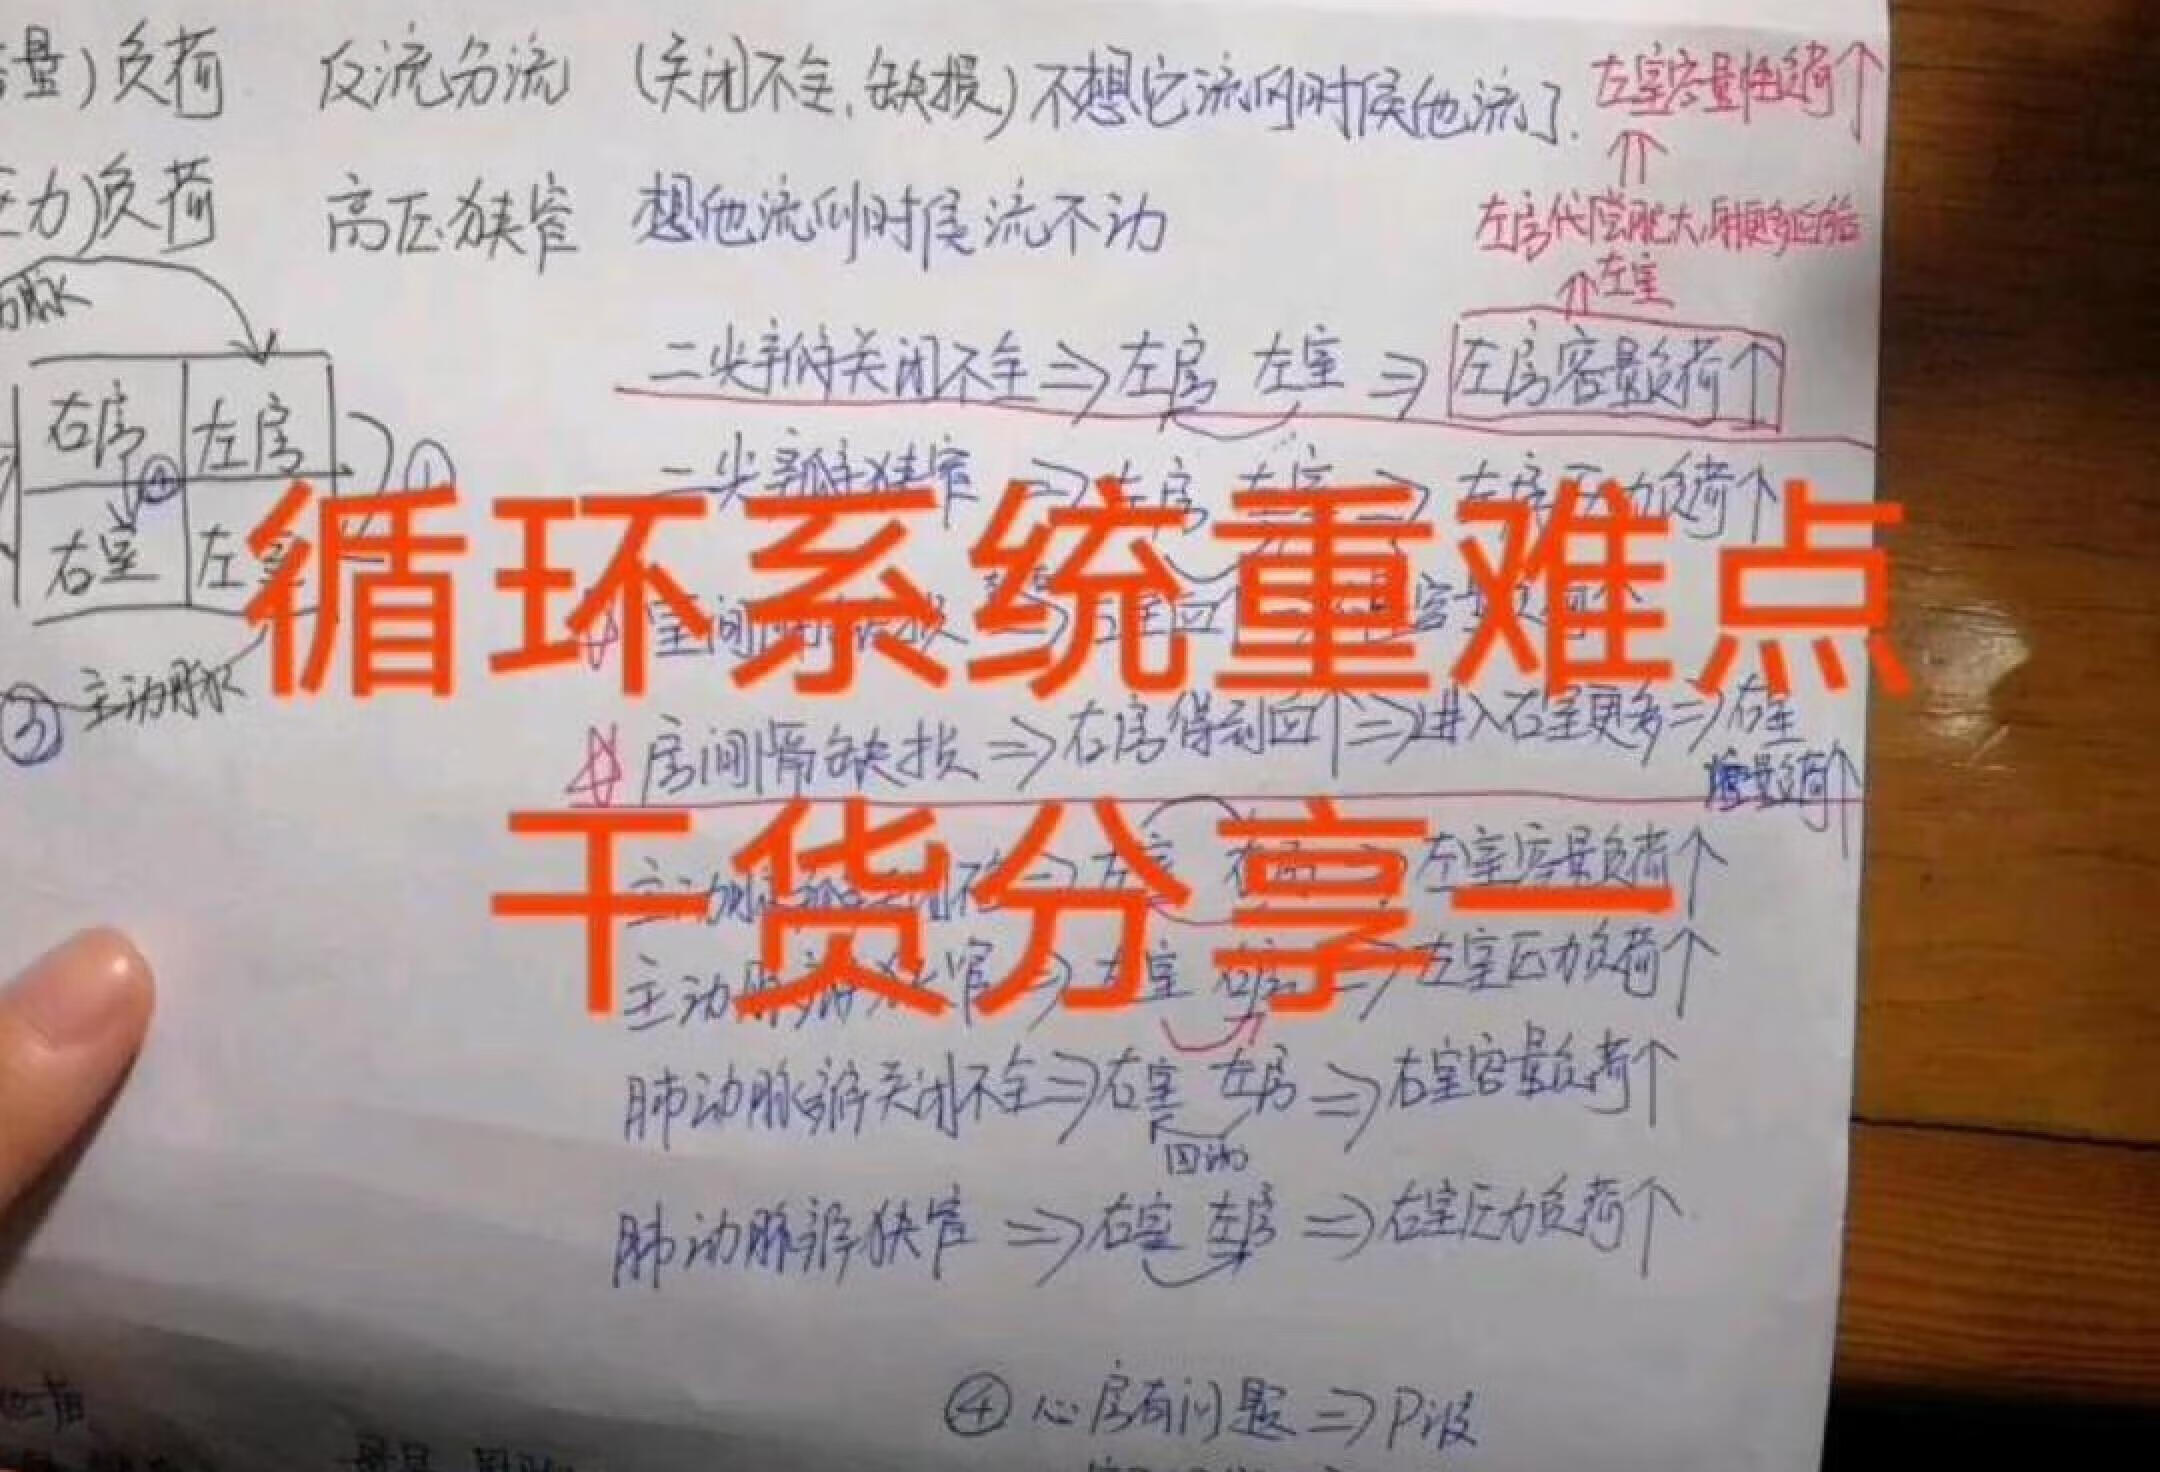 量)负荷 反流分流 (关闭不全,缺损)不想它流的时候他流了.
左室容量负荷↑
压力)负荷 高压狭窄 想他流的时候流不动
左房代偿肥大,射更多血给
左室
动脉
二尖瓣关闭不全⇒左房 左室⇒左房容量负荷↑
右房 左房 ①
二尖瓣狭窄⇒左房 左室⇒左房压力负荷↑
循环系统重难点
右室 左室
室间隔缺损
② 主动脉
房间隔缺损⇒右房得到血↑⇒进入右室更多⇒右室
容量负荷↑
干货分享一
主动脉瓣关闭不全⇒左室 ⇒左室容量负荷↑
主动脉瓣狭窄⇒左室 右房⇒左室压力负荷↑
肺动脉瓣关闭不全⇒右室 左房⇒右室容量负荷↑
回流
肺动脉瓣狭窄⇒右室 左房⇒右室压力负荷↑
④ 心房有问题⇒P波